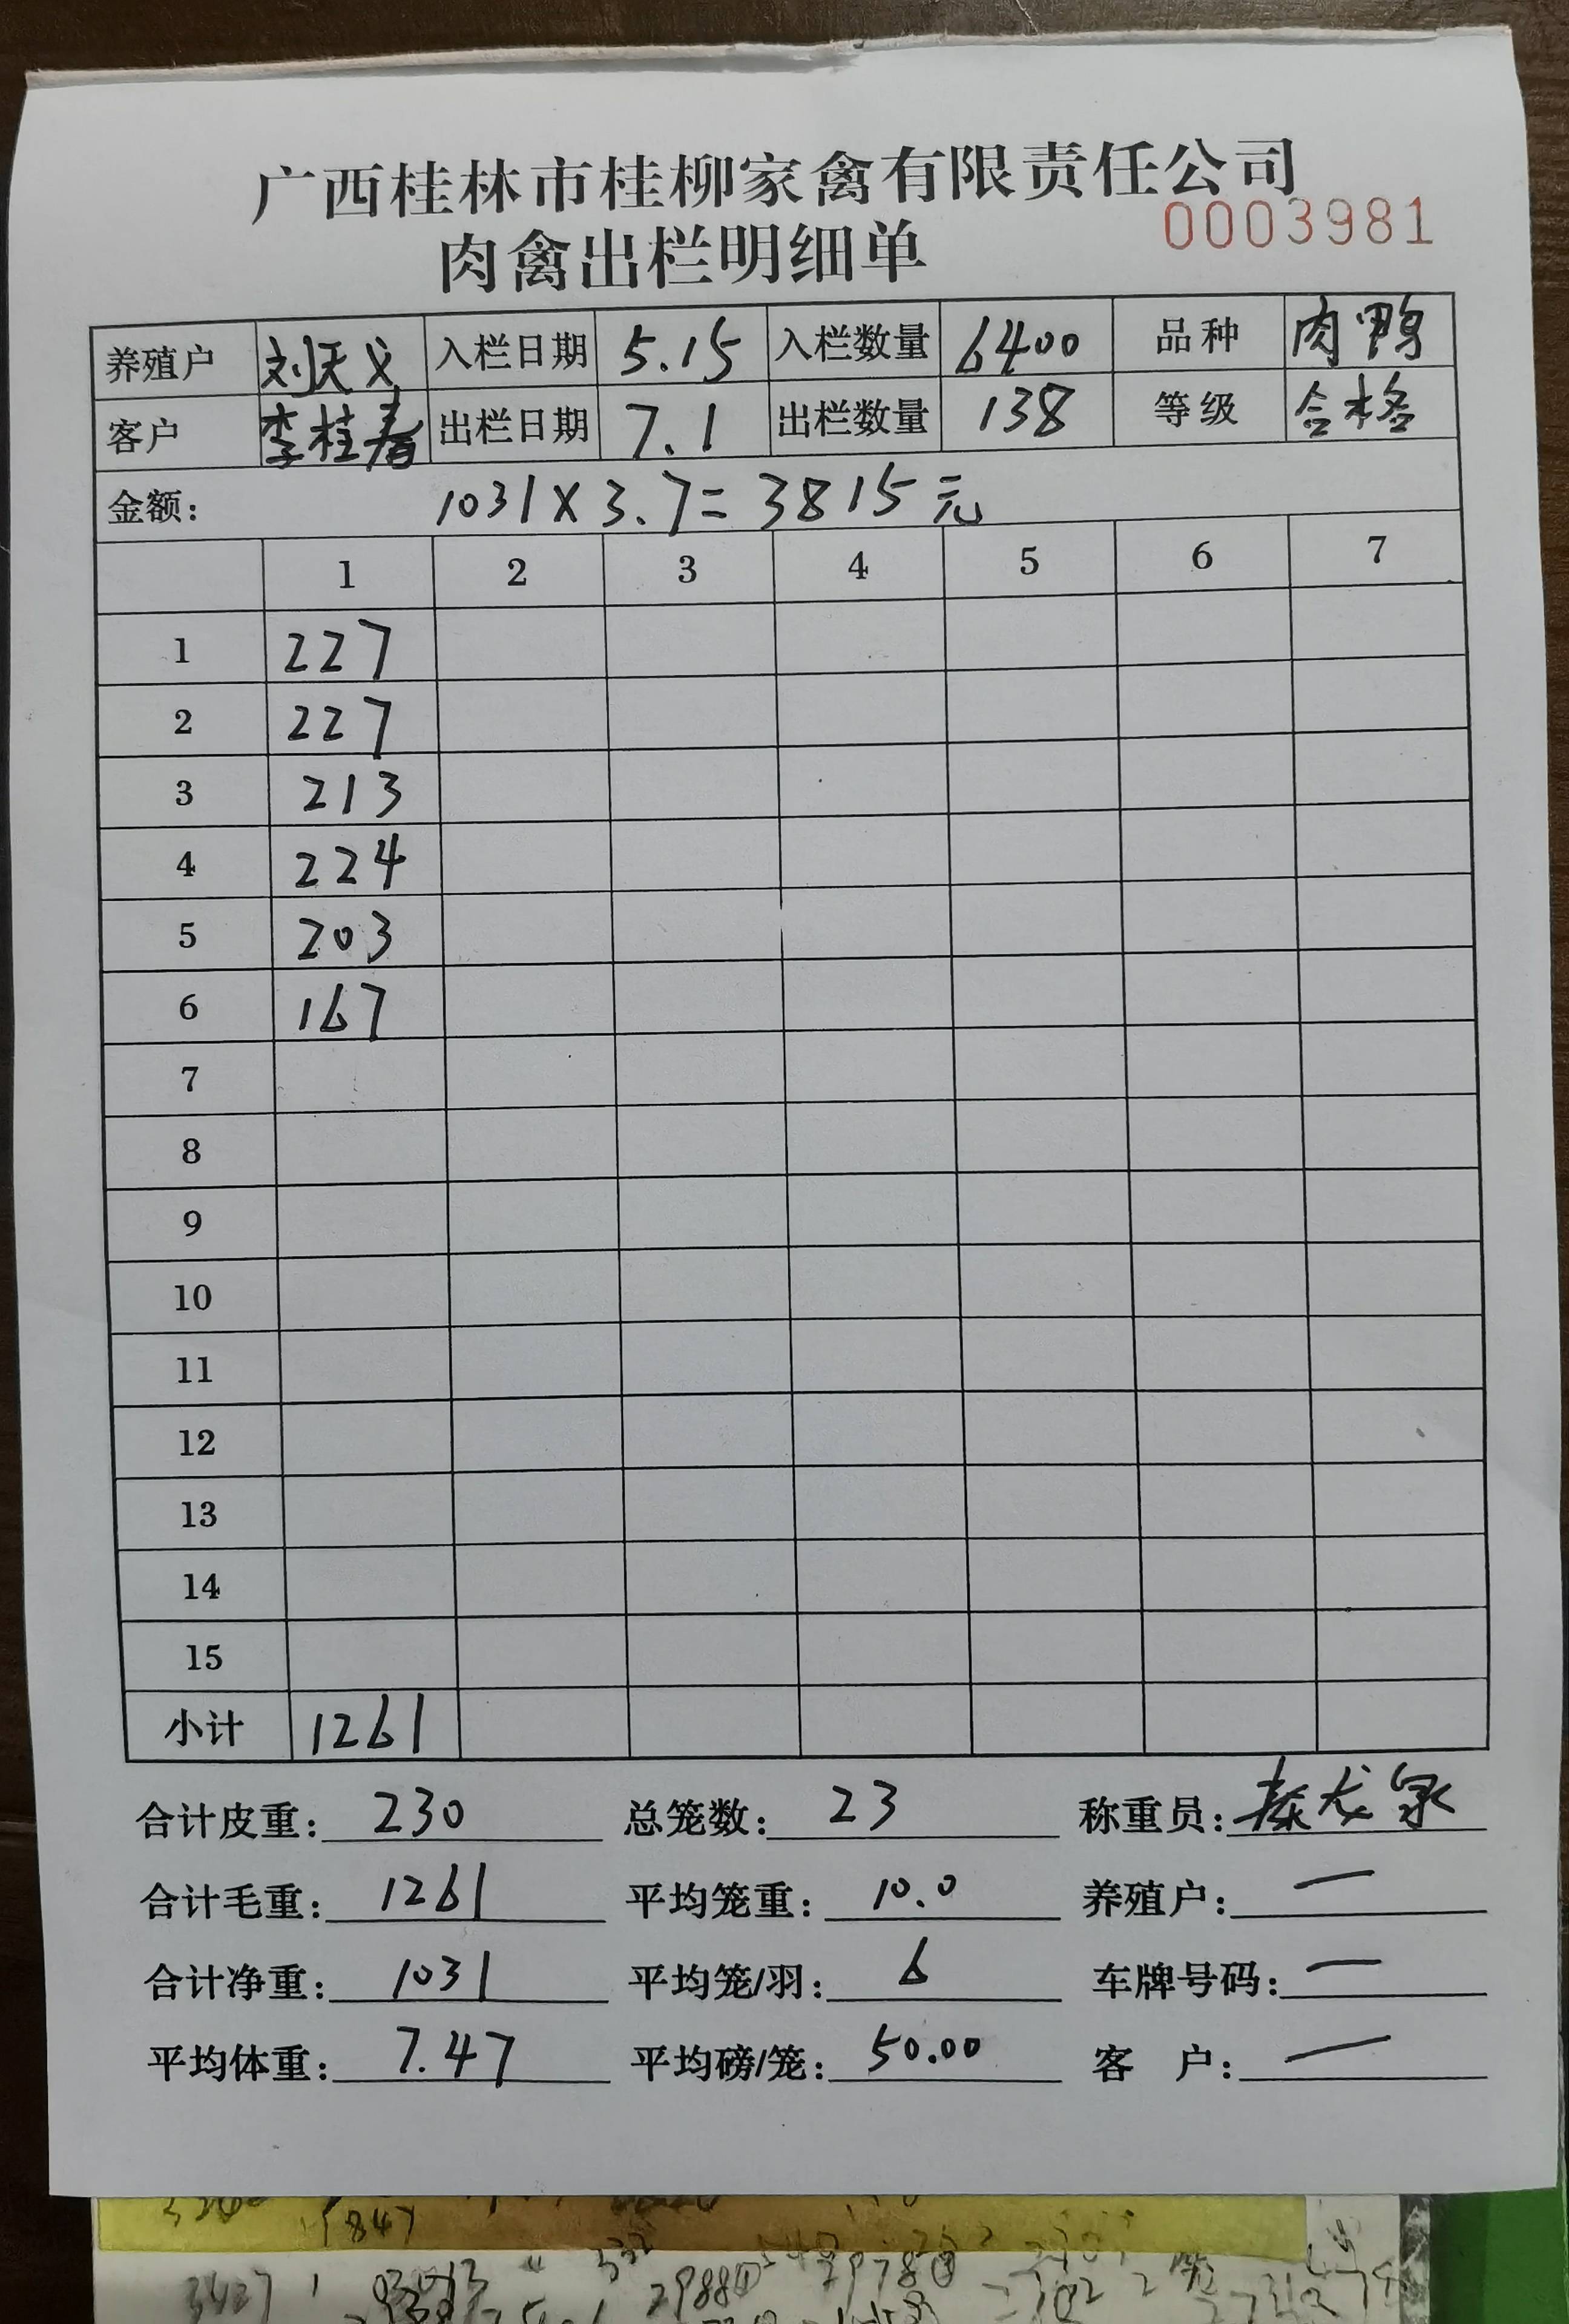 广西桂林市桂柳家禽有限责任公司
0003981
肉禽出栏明细单
养殖户 刘天义 入栏日期 5.15 入栏数量 6400 品种 肉鸭
客户 李桂春 出栏日期 7.1 出栏数量 138 等级 合格
金额: 1031×3.7=3815元
1 2 3 4 5 6 7
1 227
2 227
3 213
4 224
5 203
6 167
7
8
9
10
11
12
13
14
15
小计 1261
合计皮重: 230 总笼数: 23 称重员: 龙泉
合计毛重: 1261 平均笼重: 10.0 养殖户: 一
合计净重: 1031 平均笼/羽: 6 车牌号码: 一
平均体重: 7.47 平均磅/笼: 50.00 客 户: 一